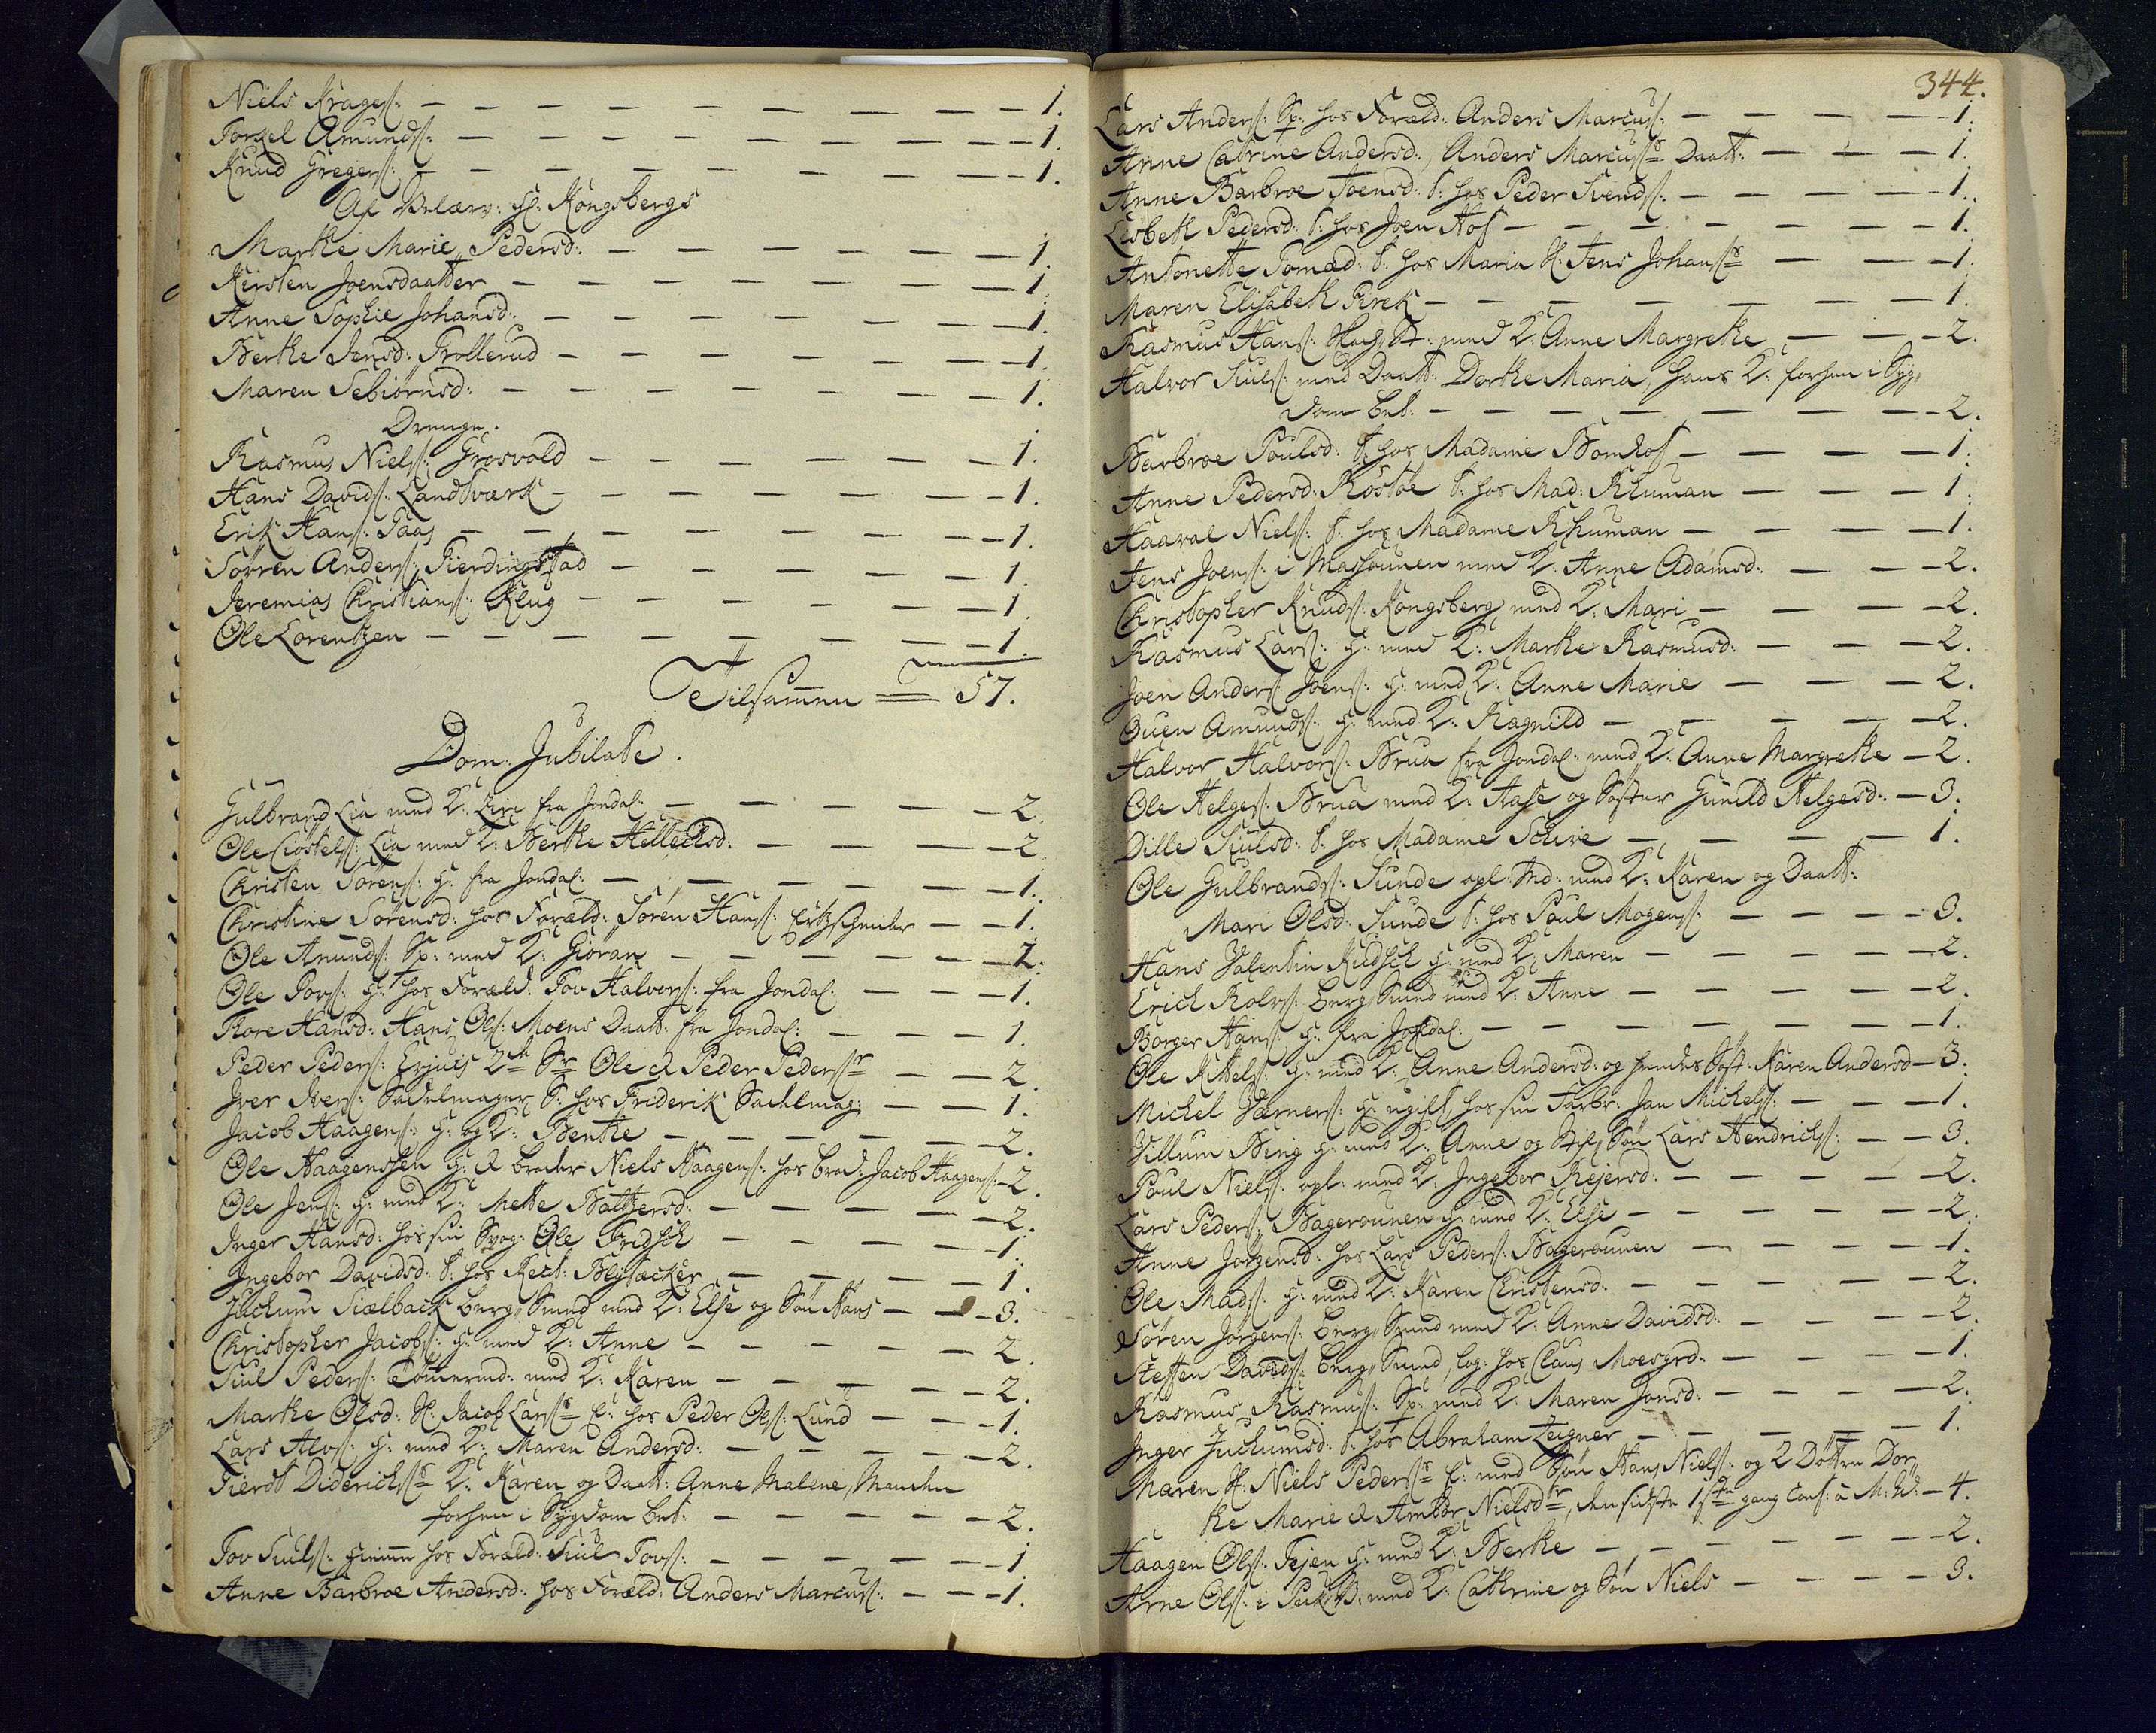 Niels Krages: — 1.
Torgel Amunds: — 1.
Knud Gregers: — 1.
Af Kongsbergs
Marthe Marie Pedersd: — 1.
Kirsten Joensdaatter — 1.
Anne Sophie Johansd: — 1.
Berthe Jensd: Trollerud — 1.
Maren Sebiörnsd: — 1.
Drenge.
Rasmus Niels: Grosvold — 1.
Hans Davids: Landtværk — 1.
Erik Hans: Paas — 1.
Sörren Anders: Fierdingstad — 1.
Jeremias Christians: Klug — 1.
Ole Lorentzen — 1.
Tilsammen = 57.
Dom: Jubilate.
Gulbrand Lia med K: Siri fra Jondal: — 2.
Ole Kiöstels: Lia med K: Berthe Hellechsd: — 2.
Christen Sörens: G: fra Jondal: — 1.
Christine Sörensd: hos Foræld: Sören Hans: Ertzscheider — 1.
Ole Amunds: Sp: med K: Giöran — 2.
Ole Tovs: G: hos Foræld: Tov Halvors: fra Jondal: — 1.
Thore Hansd: Hans Ols: Moens Daatt: fra Jondal: — 1.
Peder Peders: 2de Sr Ole & Peder Pederssr — 2.
Iver Ivers: Sadelmager S: hos Friderik Sadelmag: — 1.
Jacob Haagens: G: og K: Benthe — 2.
Ole Haagenssen G: & broder Niels Haagens: hos brod: Jacob Haagens: — 2.
Ole Jens: G: med K: Mette Baltzersd: — 2.
Inger Hansd: hos sin Svog: Ole Fridsch — 1.
Ingebor Davidsd: T: hos Rect: Blytæcker — 1.
Juchum Siælback berg, Smed med K: Else og Sön Hans — 3.
Christopher Jacobs: G: med K: Anne — 2.
Siul Peders: Tömermd: med K: Karen — 2.
Marthe Olsd: H: Jacob Larssr E: hos Peder Ols: Lund — 1.
Lars Alvs: G: med K: Maren Andersd: — 2.
Fierdt Diderichssr K: Karen og Daatt: Anne Malene, Manden
forhen i Sygdom bet: — 2.
Tov Siuls: hos Foræld: Siul Tovs: — 1
Anne Barbroe Andersd: hos Foræld: Anders Marcus: — 1.
344.
Lars Anders: Sp: hos Foræld: Anders Marcus: — 1.
Anne Catrine Andersd:, Anders Marcussr Daatt: — 1.
Anne Barbroe Joensd: T: hos Peder Svends: — 1.
Lisbeth Pedersd: T: hos Joen Hof — 1.
Antonette Tomæd: T: hos Maria H: Jens Johanssr — 1.
Maren Elisabeth Pirck — 1.
Rasmus Hans: med K: Anne Margrethe — 2.
Halvor Siuls: med Daatt: Dorthe Maria, hans K: forhen i Syg,
dom bet: — 2.
Barbroe Poulsd: T: hos Madame Bomhof — 1.
Anne Pedersd: Röstöe T: hos Mad: Rhuman — 1.
Haaval Niels: T: hos Madame Rhuman — 1.
Jens Joens: i Massounen med K: Anne Adamsd: — 2.
Christopher Knuds: Kongsberg med K: Mari — 2.
Rasmus Lars: G: med K: Marthe Rasmusd: — 2.
Joen Anders: Joens: G: med K: Anne Marie — 2.
Ouen Amunds: G: med K: Ragnild — 2.
Halvor Halvors: Brua fra Jondal: med K: Anne Margrethe — 2.
Ole Helges: Brua med K: Aase og Söster Gunild Helgesd: — 3.
Dille Siulsd: T: hos Madame Schive — 1.
Ole Gulbrands: Sunde opl: med K: Karen og Daatt:
Mari Olsd: Sunde T: hos Poul Mogens: — 3.
Hans Valentin Ridsch G: med K: Maren — 2.
Erich Rolvs: berg, Smed med K: Anne — 2.
Börger Hans: G: fra Jondal: — 1.
Ole Kittels: G: med K: Anne Andersd: og hendes Söst: Karen Andersd — 3.
Michel Værners: G: ugift, hos sin Farbr: Jan Michels: — 1.
Villum Bing G: med K: Anne og Stif, Sön Lars Hendrichs: — 3.
Poul Niels: opl: med K: Ingebor Rejersd: — 2.
Lars Peders: Bagerounen G: med K: Else — 2.
Anne Jörgensd: hos Lars Peders: Bagerounen — 1.
Ole Mads: G: med K: Karen Christensd: — 2.
Sören Jörgens: berg, Smed med K: Anne Davidsd: — 2.
Steffen Davids: berg, Smed, log: hos Claus Moesgrd: — 1.
Rasmus Rasmus: Sp: med K: Maren Jonsd: — 2.
Inger Juchumsd: T: hos Abraham Zeigner — 1.
Maren H: Niels Pederssr E: med Sön Hans Niels: og 2 Döttre Dor,
the Marie & Ambor Nielsdr, den sidste 1ste gang Conf: à M: W: — 4.
Haagen Ols: Fejen G: med K: Berthe — 2.
Arne Ols: i med K: Cathrine og Sön Niels — 3.